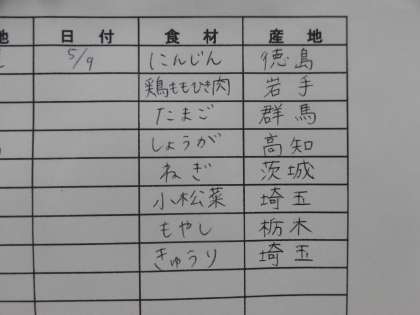 地 日付 食材 産地
5/9 にんじん 徳島
鶏ももひき肉 岩手
たまご 群馬
しょうが 高知
ねぎ 茨城
小松菜 埼玉
もやし 栃木
きゅうり 埼玉